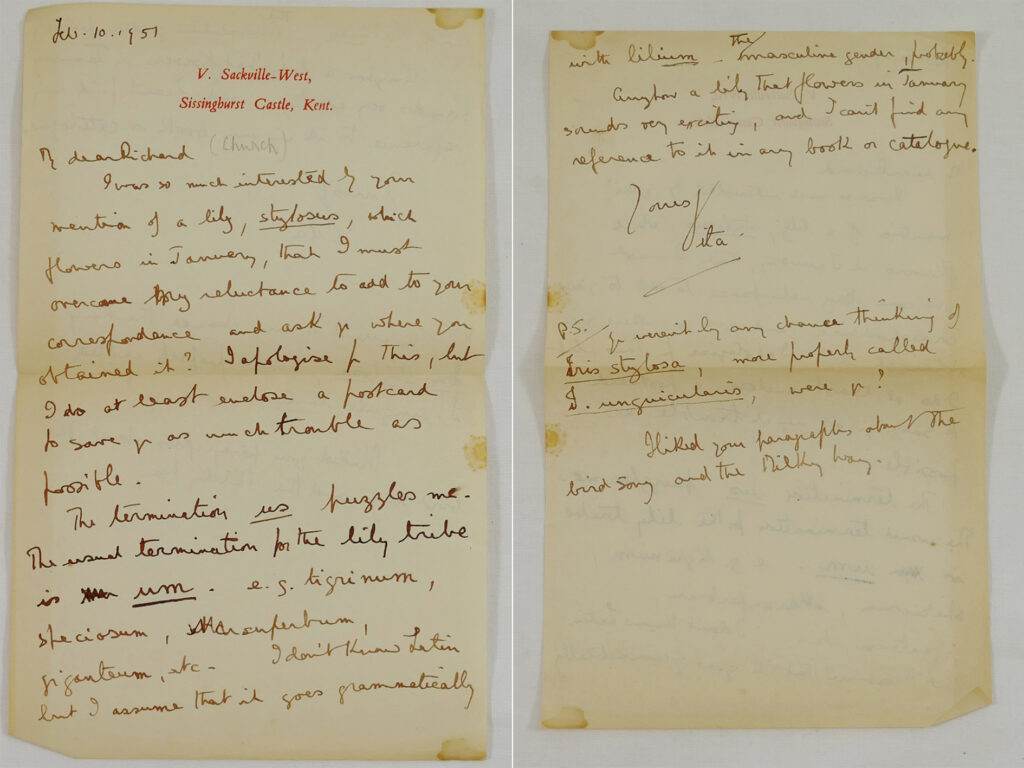 Feb. 10. 1951
V. Sackville-West,
Sissinghurst Castle, Kent.
My dear Richard (Church)
I was so much interested by your
mention of a lily, stylosus, which
flowers in January, that I must
overcome my reluctance to add to your
correspondence and ask yr where you
obtained it? I apologise for this, but
I do at least enclose a postcard
to save yr as much trouble as
possible.
The termination us puzzles me.
The usual termination for the lily tribe
is um. e.g. tigrinum,
speciosum, superbum,
giganteum, etc. I don't know Latin
but I assume that it goes grammatically
with lilium - the masculine gender, probably.
Anyhow a lily that flowers in January
sounds very exciting, and I can't find any
reference to it in any book or catalogue.
Yours
Vita
P.S. yr weren't by any chance thinking of
Iris stylosa, more properly called
I. unguicularis, were yr?
I liked your paragraphs about the
bird song and the Milky Way.